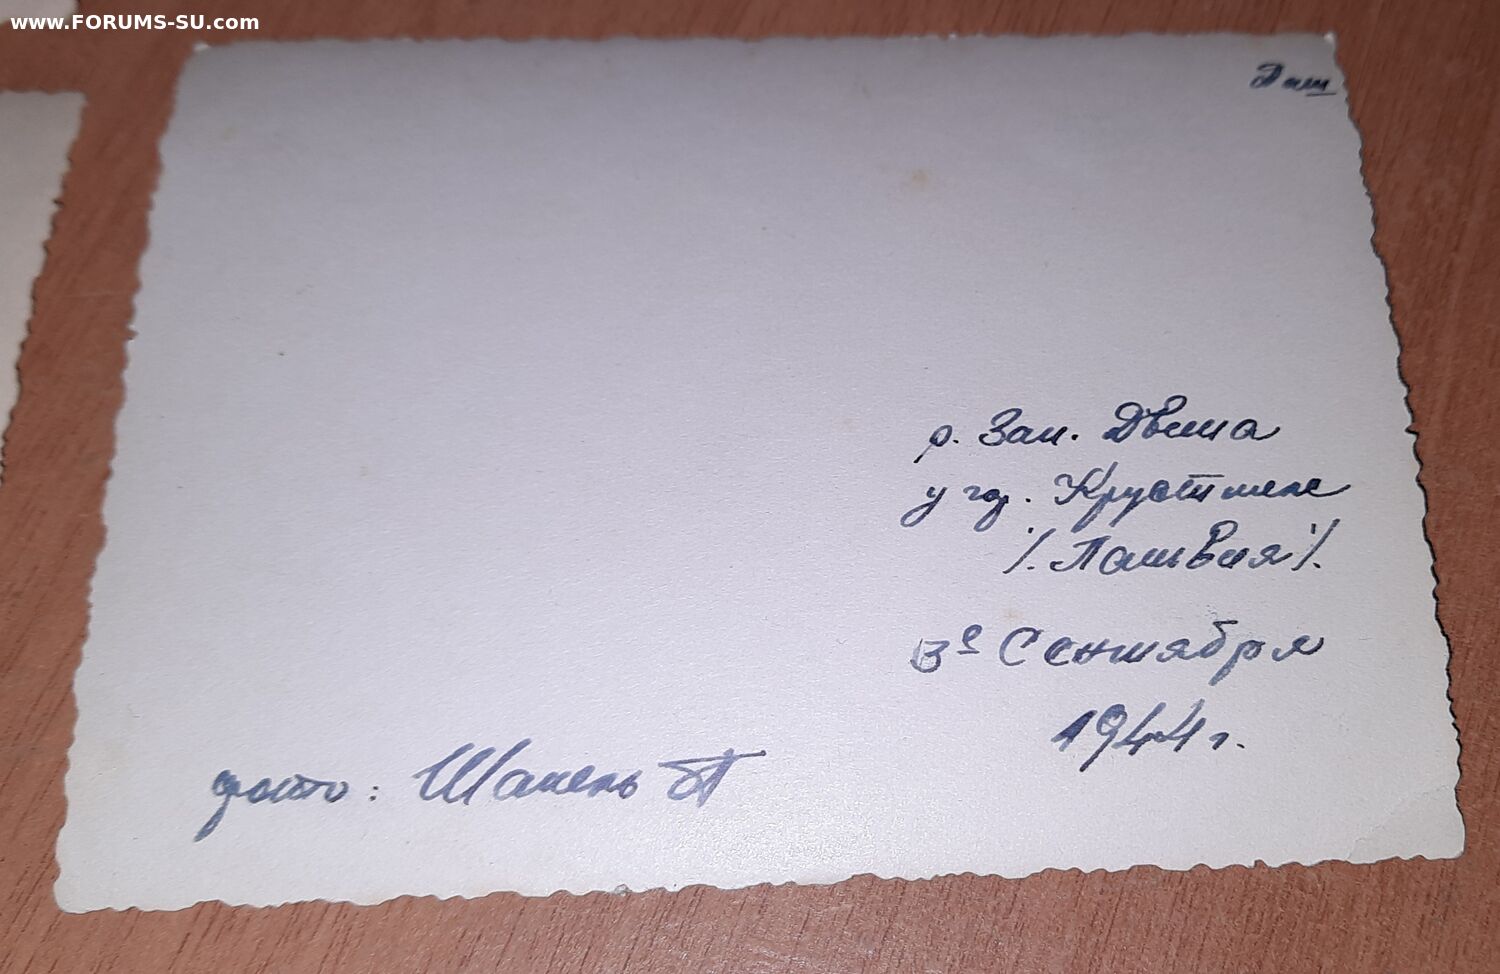 www.FORUMS-SU.com
р. Зап. Двина
у гор. Крустпилс
/. Латвия /.
3е Сентября
1944 г.
фото: Шапель